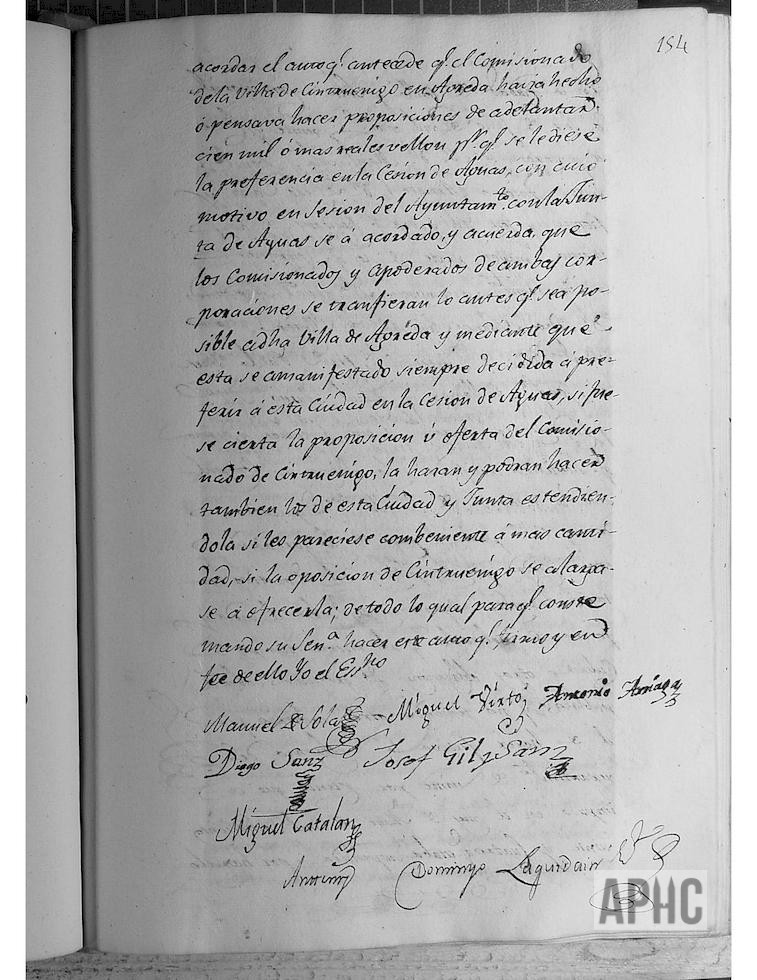 154
acordar el auto q.e antecede q.e el Comisionado
de la Villa de Cintruenigo en Agreda havia hecho
ó pensava hacer proposiciones de adelantar
cien mil ó mas reales vellon p.a q.e se le diese
la preferencia en la Cesion de Aguas, con cuio
motivo en Sesion del Ayuntam.to con la Jun-
ta de Aguas se á acordado, y acuerda, que
los Comisionados y apoderados de ambas cor-
poraciones se tranfieran lo antes q.e sea po-
sible a dha Villa de Agreda y mediante que
esta se a manifestado siempre decidida á pre-
ferir á esta Ciudad en la Cesion de Aguas, si fue-
se cierta la proposicion ú oferta del Comisio-
nado de Cintruenigo, la haran y podran hacer
tambien los de esta Ciudad y Junta estendien-
dola si les pareciese combeniente á mas canti-
dad, si la oposicion de Cintruenigo se alarga-
se á ofrecerla; de todo lo qual para q.e conste
mando su Sen.a hacer este auto q.e firmo y en
fee de ello Yo el Es.no
Manuel de Sola Miguel Virto Antonio Arriaga
Diego Sanz Josef Gil y Sanz
Miguel Catalan
Antt.mi Domingo Laquidain
APHC